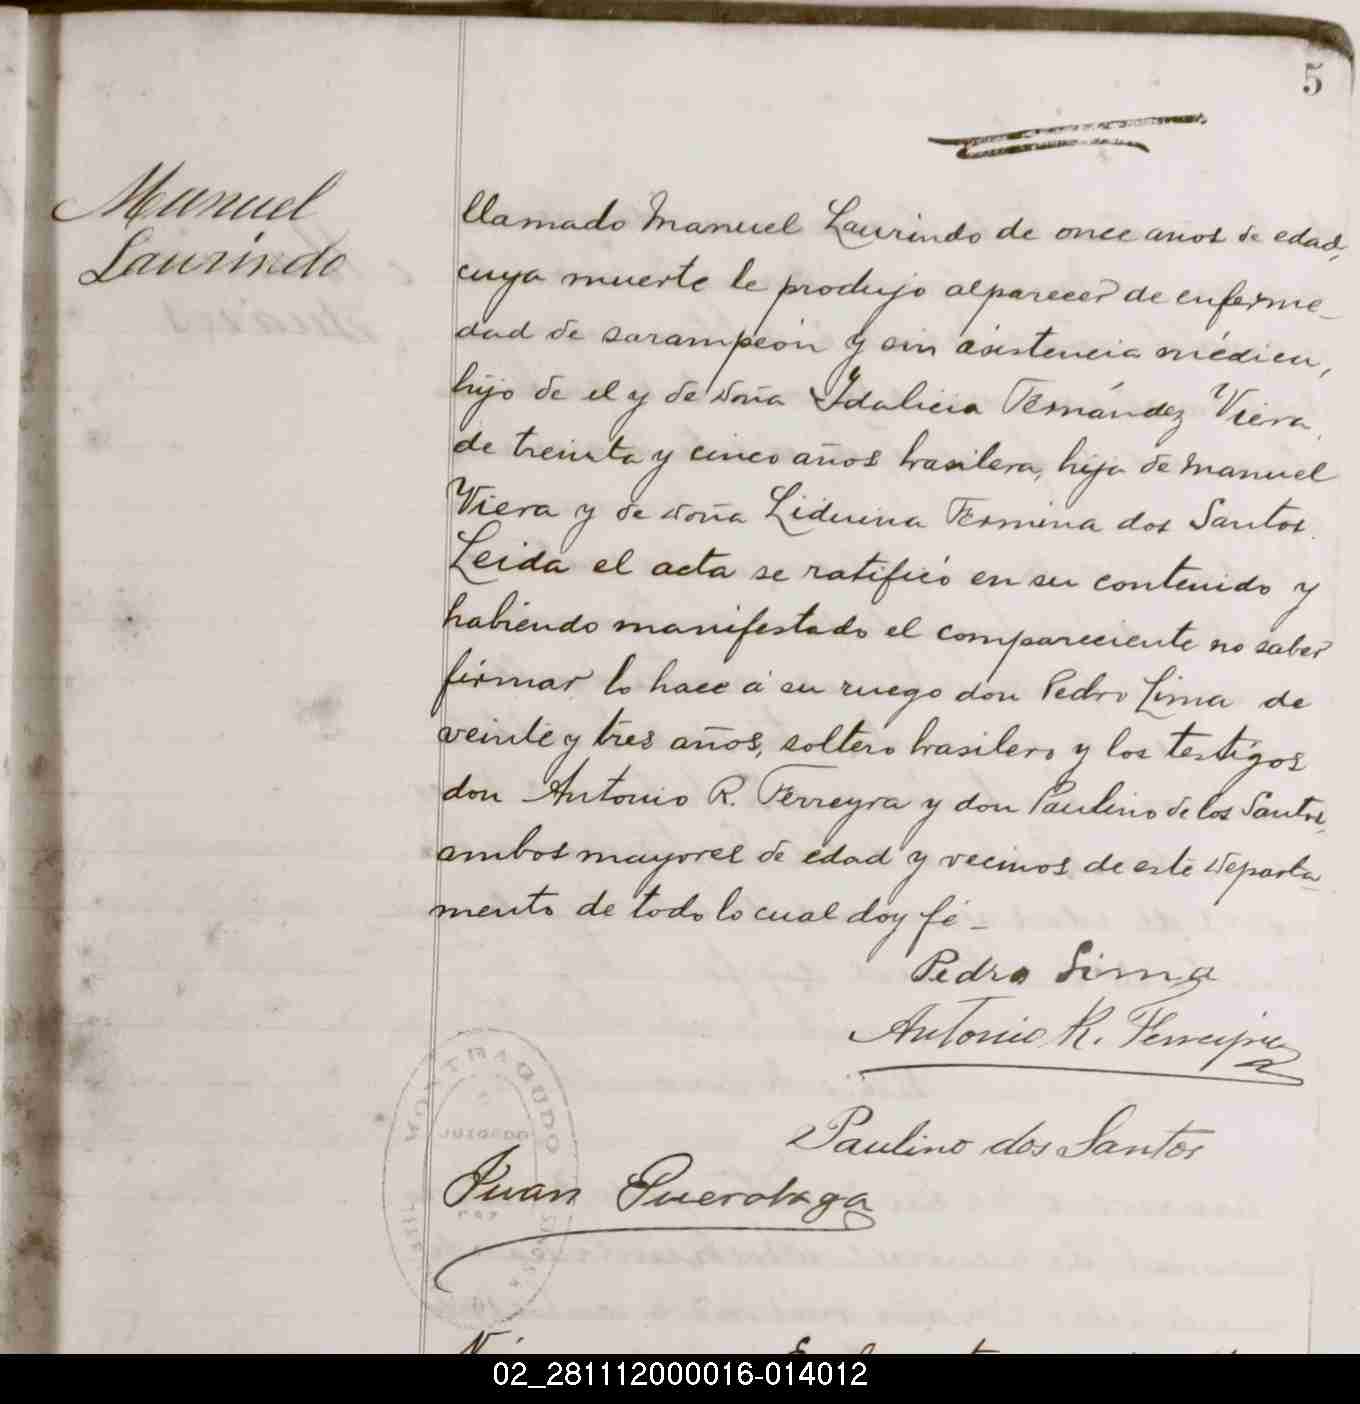 5
Manuel
Laurindo
llamado Manuel Laurindo de once años de edad,
cuya muerte le produjo alparecer de enferme-
dad de sarampeón y sin asistencia médica,
hijo de el y de doña Idalicia Fernández Viera
de treinta y cinco años brasilera, hija de Manuel
Viera y de doña Liduina Fermina dos Santos.
Leida el acta se ratificó en su contenido y
habiendo manifestado el compareciente no saber
firmar lo hace á su ruego don Pedro Lima de
veinte y tres años, soltero brasilero y los testigos
don Antonio R. Ferreyra y don Paulino de los Santos,
ambos mayores de edad y vecinos de este departa-
mento de todo lo cual doy fé-
Pedro Lima
Antonio R. Ferreyra
Paulino dos Santos
Juan
02_281112000016-014012